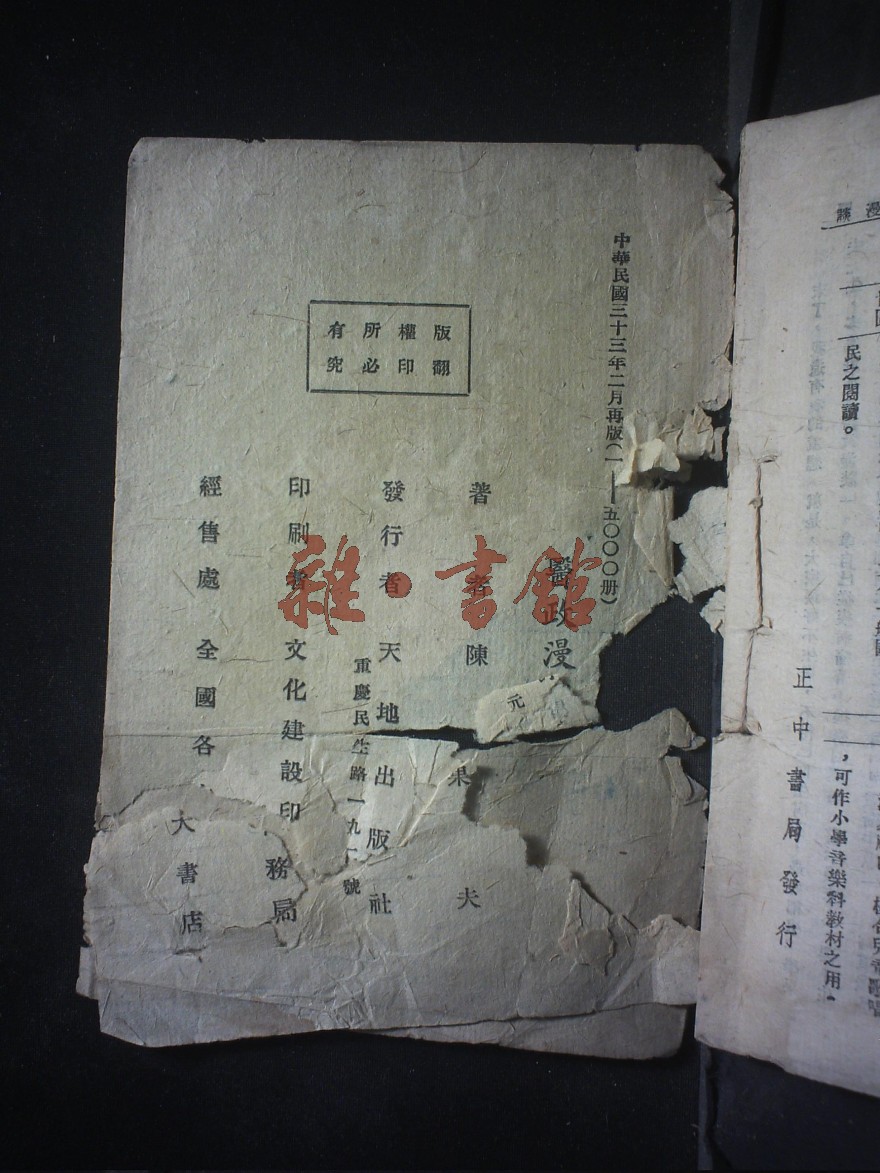 中華民國三十三年二月再版(一——五〇〇〇册)
版權所有
翻印必究
醫政漫
元
著者陳果夫
發行者天地出版社
重慶民生路一九 號
印刷者文化建設印 務局
經售處全國各大書店
雜·書館
漫
民之閱讀。
,可作小學音樂科教材之用。
正中書局發行